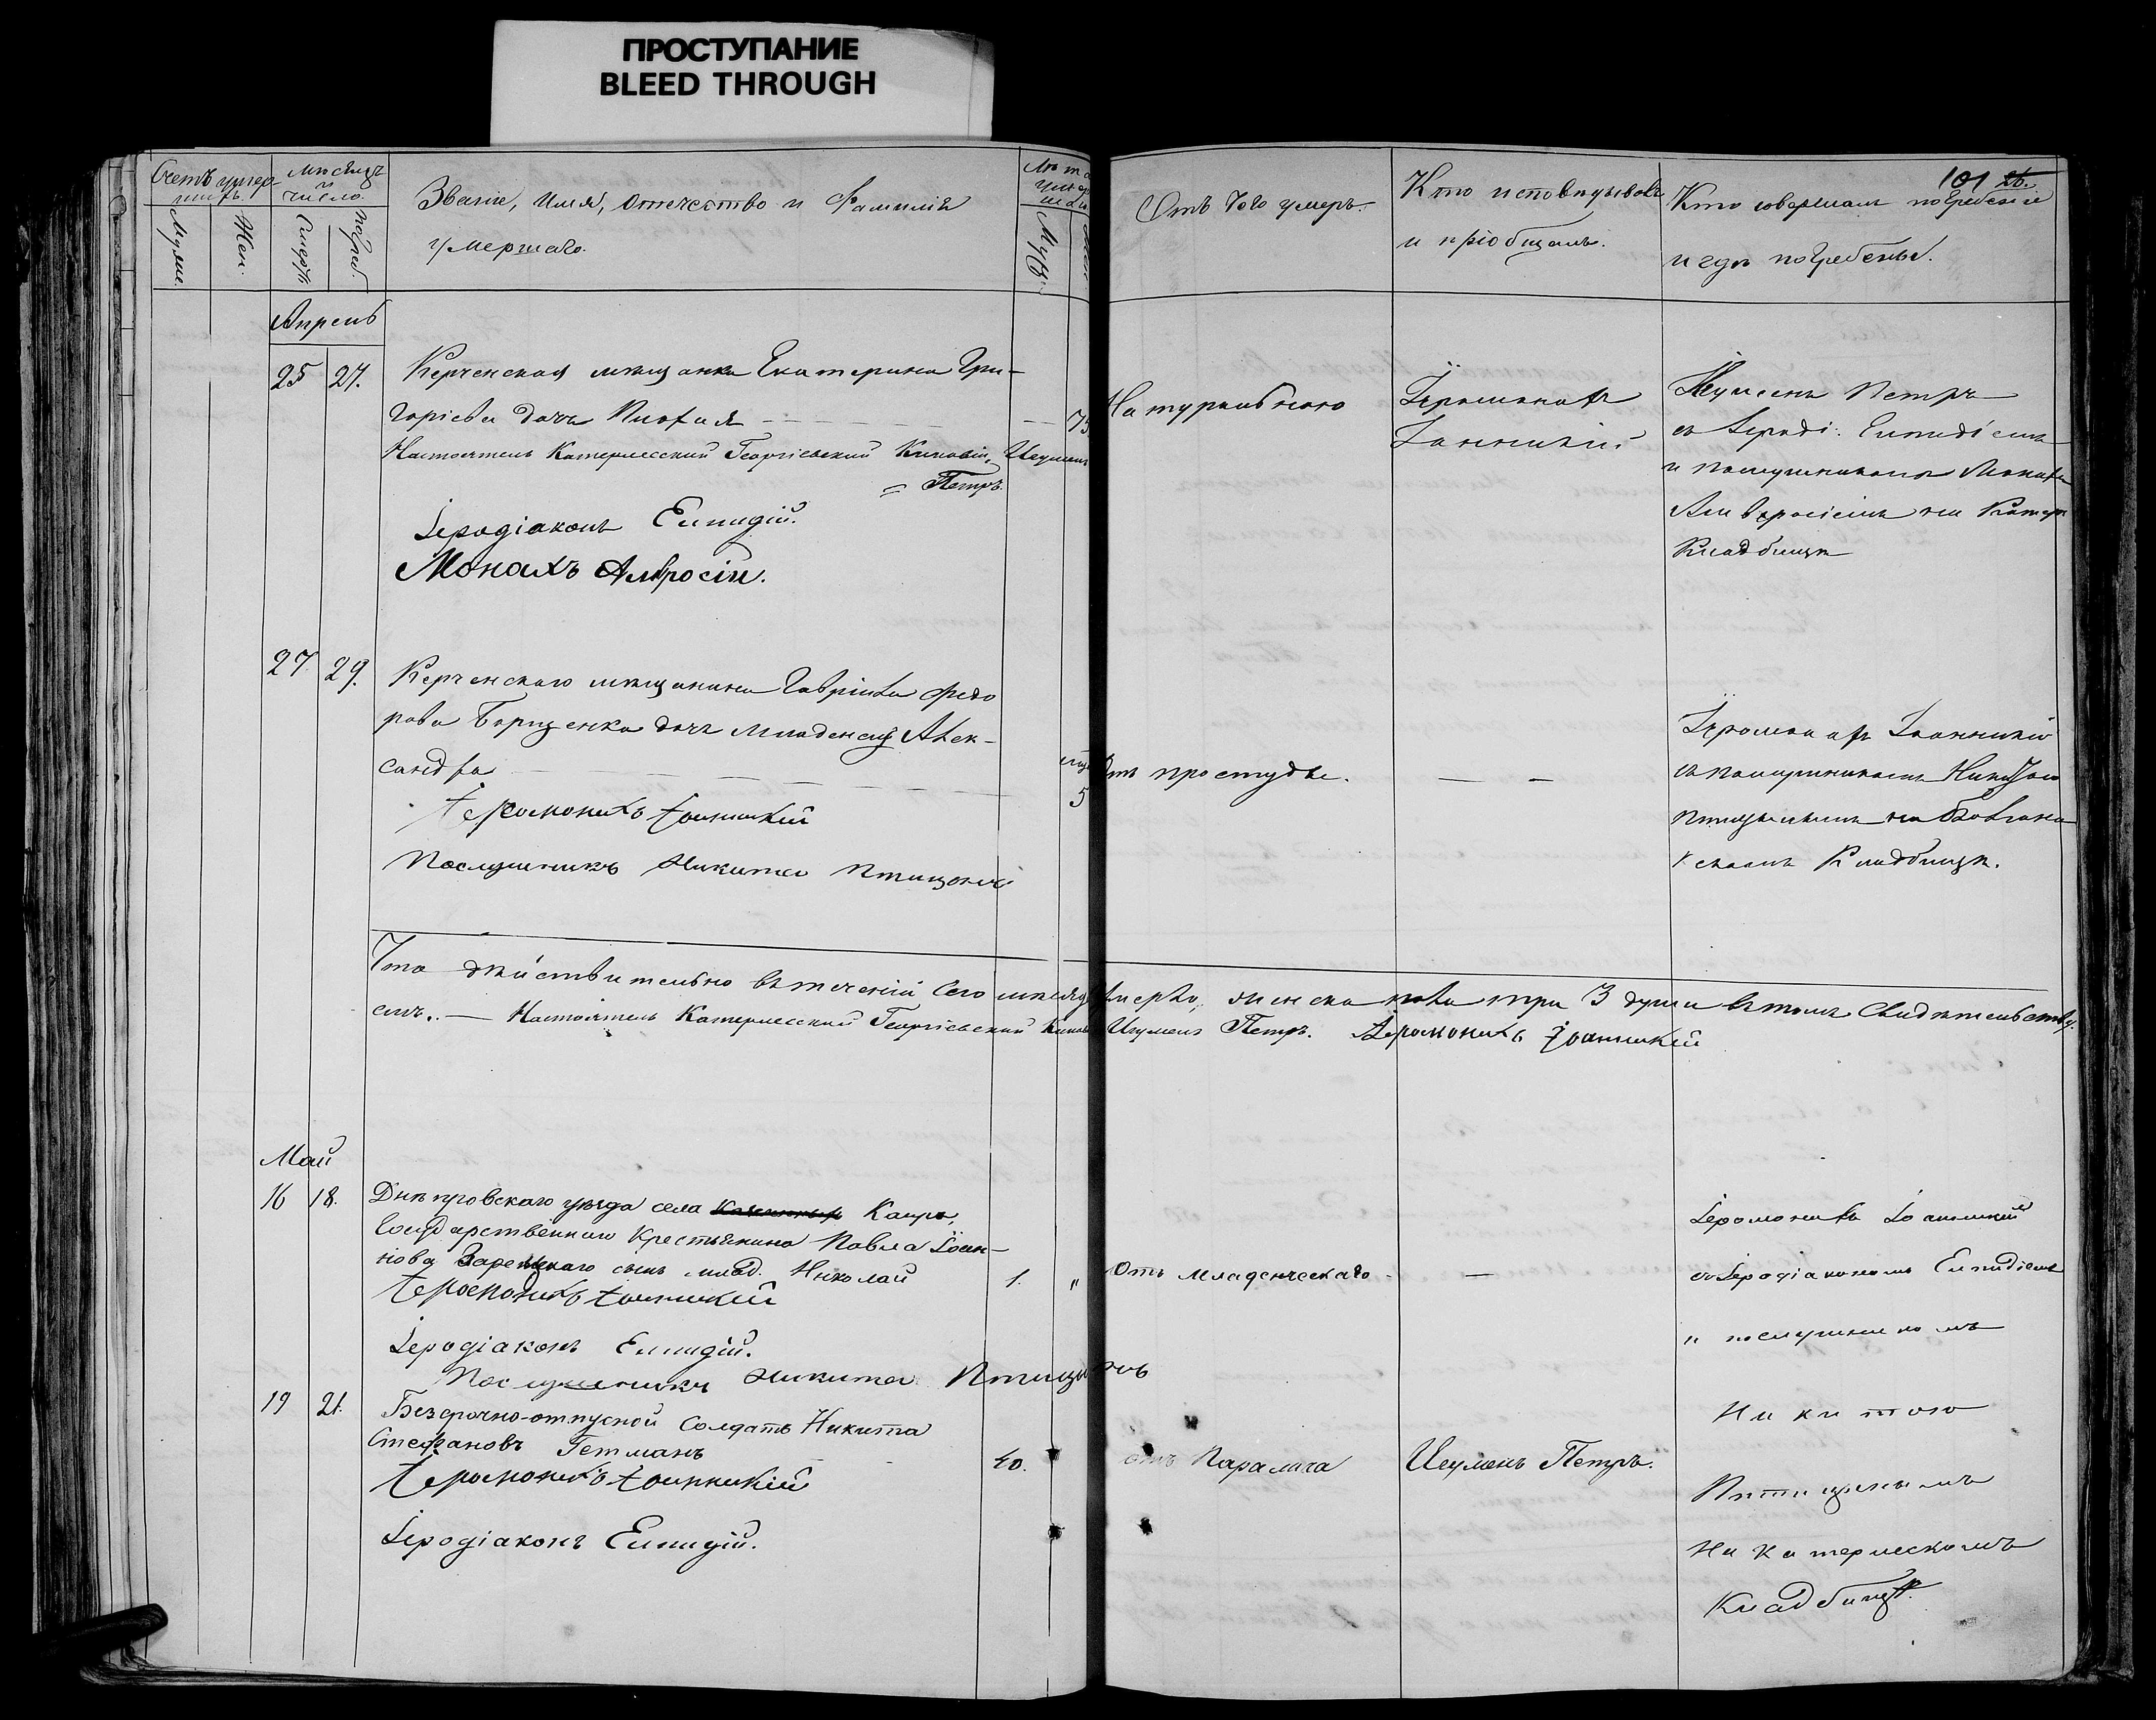 ПРОСТУПАНИЕ
BLEED THROUGH
101 26.
Счетъ умер-
шихъ.
Муж.
Жен.
Мѣсяцъ
и
число.
Смерть
Погреб.
Званіе, имя, отечество и Фамилія
умершаго.
Отъ чего умеръ.
Кто исповѣдывалъ
и пріобщалъ.
Кто совершалъ погребеніе
и гдѣ погребены.
Апрель
25 27.
Керченская мѣщанка Екатерина Гри-
горіева дочь
Настоятель Катерлесской Георгіевской Киновіи, Игуменъ
Петръ.
Іеродіаконъ Елпидій.
Монахъ Амвросій.
Натуральною
Іеромонахъ
Іоанникій
Игуменъ Петръ
съ Іероді. Елпидіемъ
и
Амвросіемъ на Катер
Кладбищѣ
27. 29.
Керченскаго мѣщанина Гавріила Федо
рова Борщенка дочь младенецъ Алек-
сандра
5
Іеромонахъ Іоанникій
Послушникъ Никита Птицынъ
Отъ простуды.
Іеромонахъ Іоанникій
съ послушникомъ Никитою
Птицынымъ на
Кладбищѣ.
Что дѣйствительно въ теченіи сего мѣсяца умерло женска пола три 3 души въ томъ свидѣтельству-
емъ. — Настоятель Катерлесской Георгіевской Кинов Игуменъ Петръ. Іеромонахъ Іоанникій
Май
16 18.
Днѣпровскаго уѣзда села Каиръ,
Государственнаго Крестьянина Павла Іоан-
нова сынъ млад. Николай 1. "
Іеромонахъ Іоанникій
Іеродіаконъ Елпидій.
Послушникъ Никита Птицынъ
Отъ младенческаго
Іеромонахъ Іоанникій
съ Іеродіакономъ Елпидіемъ
и послушникомъ
Никитою
Птицынымъ
На Катерлескомъ
Кладбищѣ.
19 21.
Безсрочно-отпускной Солдатъ Никита
Стефановъ Гетманъ 40.
Іеромонахъ Іоанникій
Іеродіаконъ Елпидій.
отъ Паралича
Игуменъ Петръ.